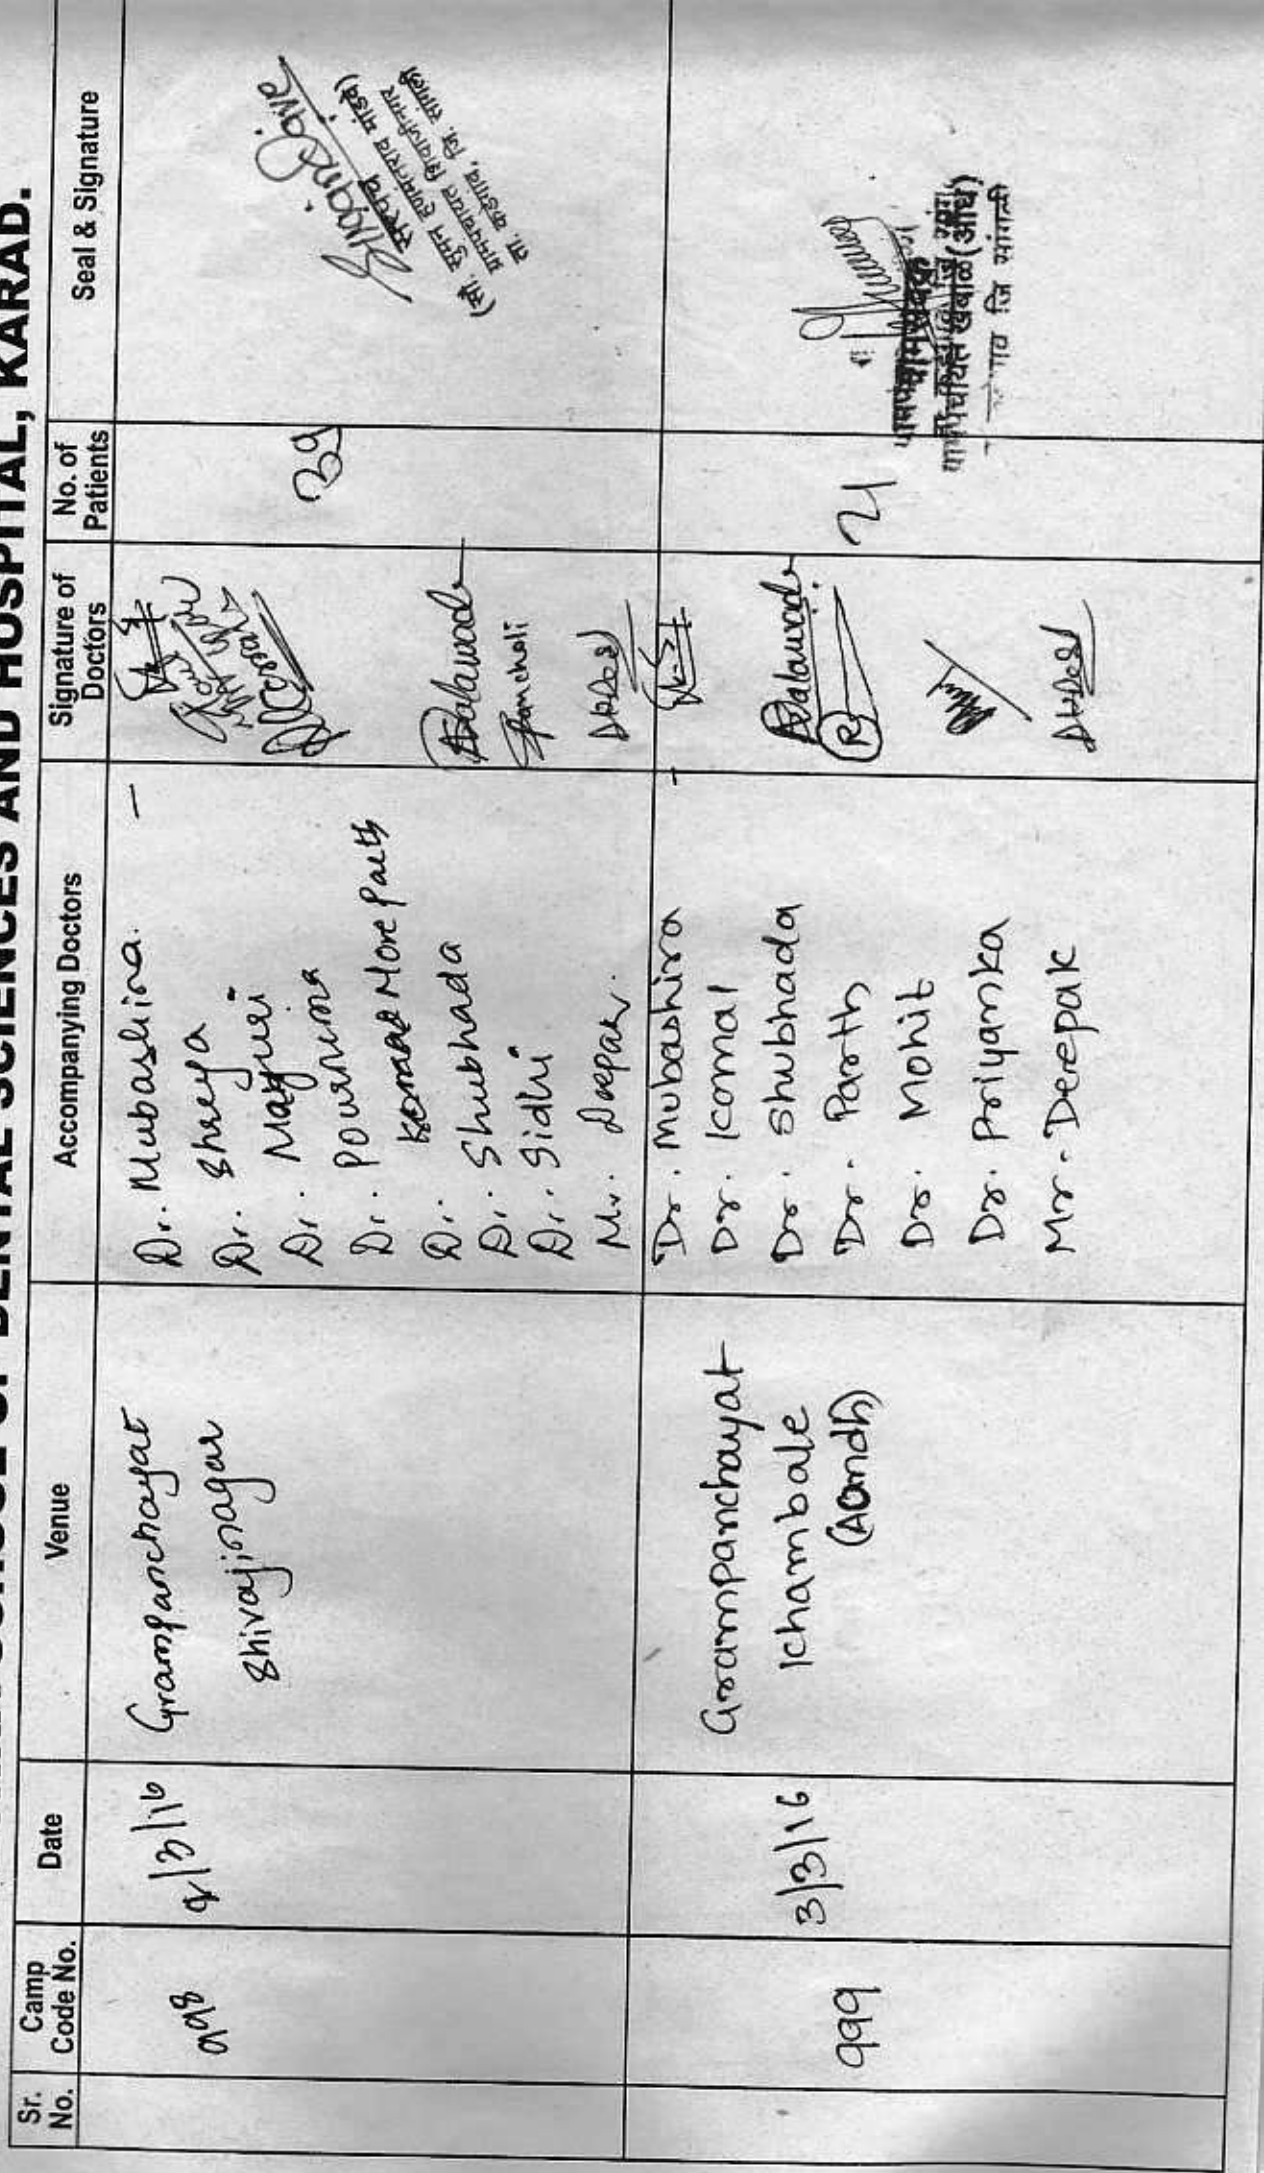 SCHOOL OF DENTAL SCIENCES AND HOSPITAL, KARAD.
Sr. No.
Camp Code No.
Date
Venue
Accompanying Doctors
Signature of Doctors
No. of Patients
Seal & Signature
998
2/3/16
Grampanchayat
Shivajinagar
Dr. Mubashira. —
Dr. Shreya
Dr. Mayuri
Dr. Pournima
Dr. More Parth
Dr. Shubhada
Dr. Sidhi
Mr. Deepak.
Dalawade
Pancholi
39
सरपंच
(सौ. सुमन हणमंतराव मांडवे)
ग्रामपंचायत शिवाजीनगर
ता. कडेगाव, जि. सांगली
999
3/3/16
Grampanchayat
Khambale
(Aundh)
Dr. Mubashira
Dr. Komal
Dr. Shubhada
Dr. Parth
Dr. Mohit
Dr. Priyanka
Mr. Deepak
Dalawade
21
खंबाळे (औंध)
जि सांगली